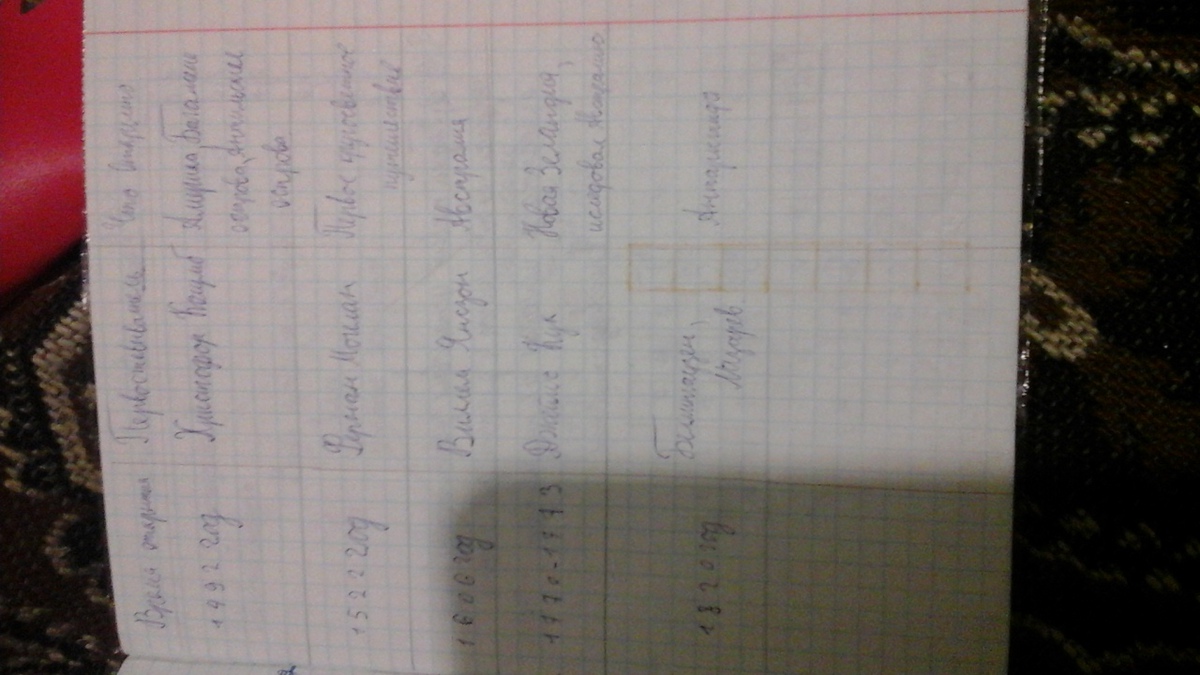 Время открытия Первооткрыватель Что открыто
1492 год Христофор Колумб Америка, Багамские
острова, Антильские
острова
1522 год Фернан Магеллан Первое кругосветное
путешествие
1606 год Вилем Янсзон Австралия
1770-1773 Джеймс Кук Новая Зеландия,
исследовал Австралию
1820 год Беллинсгаузен, Антарктида
Лазарев